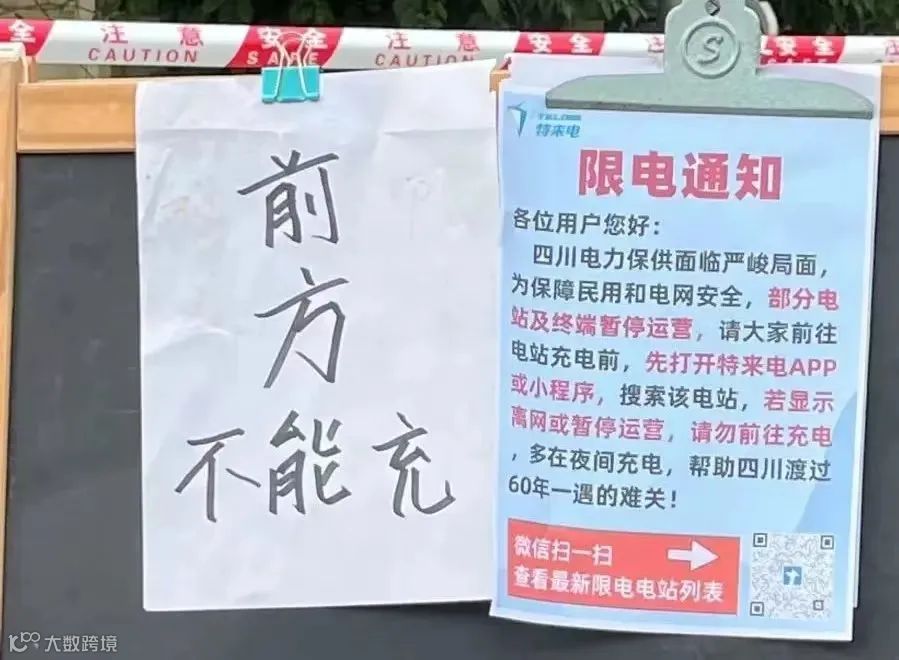 注 意 安 全 注 意 安 全 安 全
CAUTION SAFE CAUTION SAFE CAUTION
前
方
不能充
S
特来电
限电通知
各位用户您好：
四川电力保供面临严峻局面，
为保障民用和电网安全，部分电
站及终端暂停运营，请大家前往
电站充电前，先打开特来电APP
或小程序，搜索该电站，若显示
离网或暂停运营，请勿前往充电
，多在夜间充电，帮助四川渡过
60年一遇的难关！
微信扫一扫
查看最新限电电站列表
大数跨境